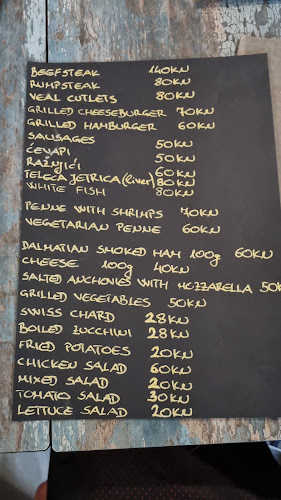 BEEFSTEAK 140KN
RUMPSTEAK 80KN
VEAL CUTLETS 80KN
GRILLED CHEESEBURGER 70KN
GRILLED HAMBURGER 60KN
SAUSAGES 50KN
ĆEVAPI 50KN
RAŽNJIĆI 60KN
TELEĆA JETRICA (liver) 80KN
WHITE FISH 80KN
PENNE WITH SHRIMPS 70KN
VEGETARIAN PENNE 60KN
DALMATIAN SMOKED HAM 100g 60KN
CHEESE 100g 40KN
SALTED ANCHOVIES WITH MOZZARELLA 50K
GRILLED VEGETABLES 50KN
SWISS CHARD 28KN
BOILED ZUCCHINI 28KN
FRIED POTATOES 20KN
CHICKEN SALAD 60KN
MIXED SALAD 20KN
TOMATO SALAD 30KN
LETTUCE SALAD 20KN